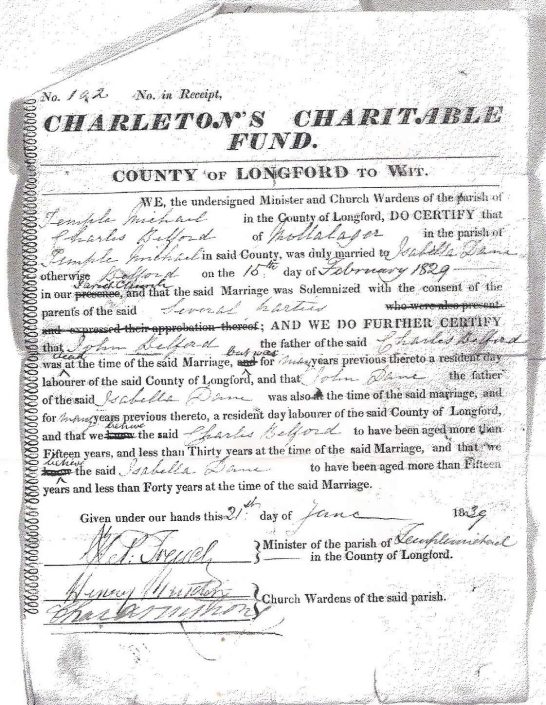 No. 192 No. in Receipt,
CHARLETON'S CHARITABLE
FUND.
COUNTY OF LONGFORD TO WIT.
WE, the undersigned Minister and Church Wardens of the parish of
Temple Michael in the County of Longford, DO CERTIFY that
Charles Belford of in the parish of
Temple Michael in said County, was duly married to Isabella Dane
otherwise Belford on the 15th day of February 1829
Parish Church
in our presence, and that the said Marriage was Solemnized with the consent of the
parents of the said Several parties who were also present
and expressed their approbation thereof; AND WE DO FURTHER CERTIFY
that John Belford the father of the said Charles Belford
dead but was
was at the time of the said Marriage, and for many years previous thereto a resident day
labourer of the said County of Longford, and that John Dane the father
of the said Isabella Dane was also at the time of the said marriage, and
for many years previous thereto, a resident day labourer of the said County of Longford,
believe
and that we know the said Charles Belford to have been aged more than
Fifteen years, and less than Thirty years at the time of the said Marriage, and that we
believe
know the said Isabella Dane to have been aged more than Fifteen
years and less than Forty years at the time of the said Marriage.
Given under our hands this 21st day of June 1839
Minister of the parish of Templemichael
in the County of Longford.
Henry
Church Wardens of the said parish.